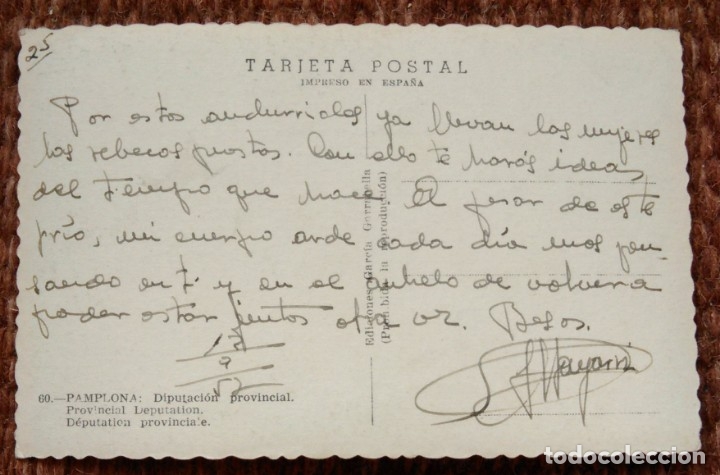 25
TARJETA POSTAL
IMPRESO EN ESPAÑA
Por estos andurriales ya llevan las mujeres
las rebecas puestas. Con ello te harás idea
del tiempo que hace. A pesar de este
frío, mi cuerpo arde cada día más pen-
sando en ti y en el anhelo de volver a
poder estar juntos otra vez. Besos.
9
52
Ediciones García Garrabella
(Prohibida la reproducción)
60.—PAMPLONA: Diputación provincial.
Provincial Deputation.
Députatica provinciale.
todocoleccion